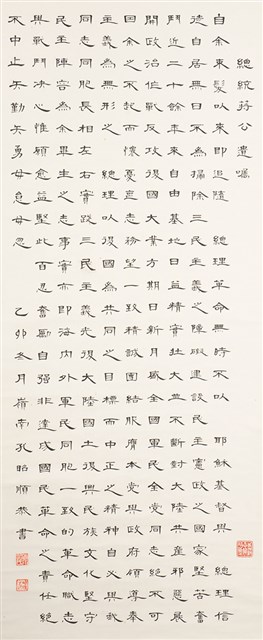 總統蔣公遺囑
自余束髮以來即追隨 總理革命無時不以 耶穌基督與 總理信
徒自居無日不為掃除三民主義之障礙建設民主憲政之國家堅苦奮
鬥近二十餘年來自由基地日益精實壯大並不斷對大陸共產邪惡展
開政治作戰反攻復國大業方期日新月盛全國軍民全黨同志絕不可
因余之不起而懷憂喪志務望一致精誠團結服膺本黨與政府領導奉
主義為無形之 總理以復國為共同之目標而中正之精神自必與我
同志同胞長相左右實踐三民主義光復大陸國土復興民族文化堅守
民主陣容為余畢生之志事實亦即海內外軍民同胞一致的革命職志
與戰鬥決心惟願愈益堅此百忍奮勵自強非達成國民革命之責任絕
不中止矢勤矢勇毋怠毋忽 乙卯冬月嶺南孔昭順敬書